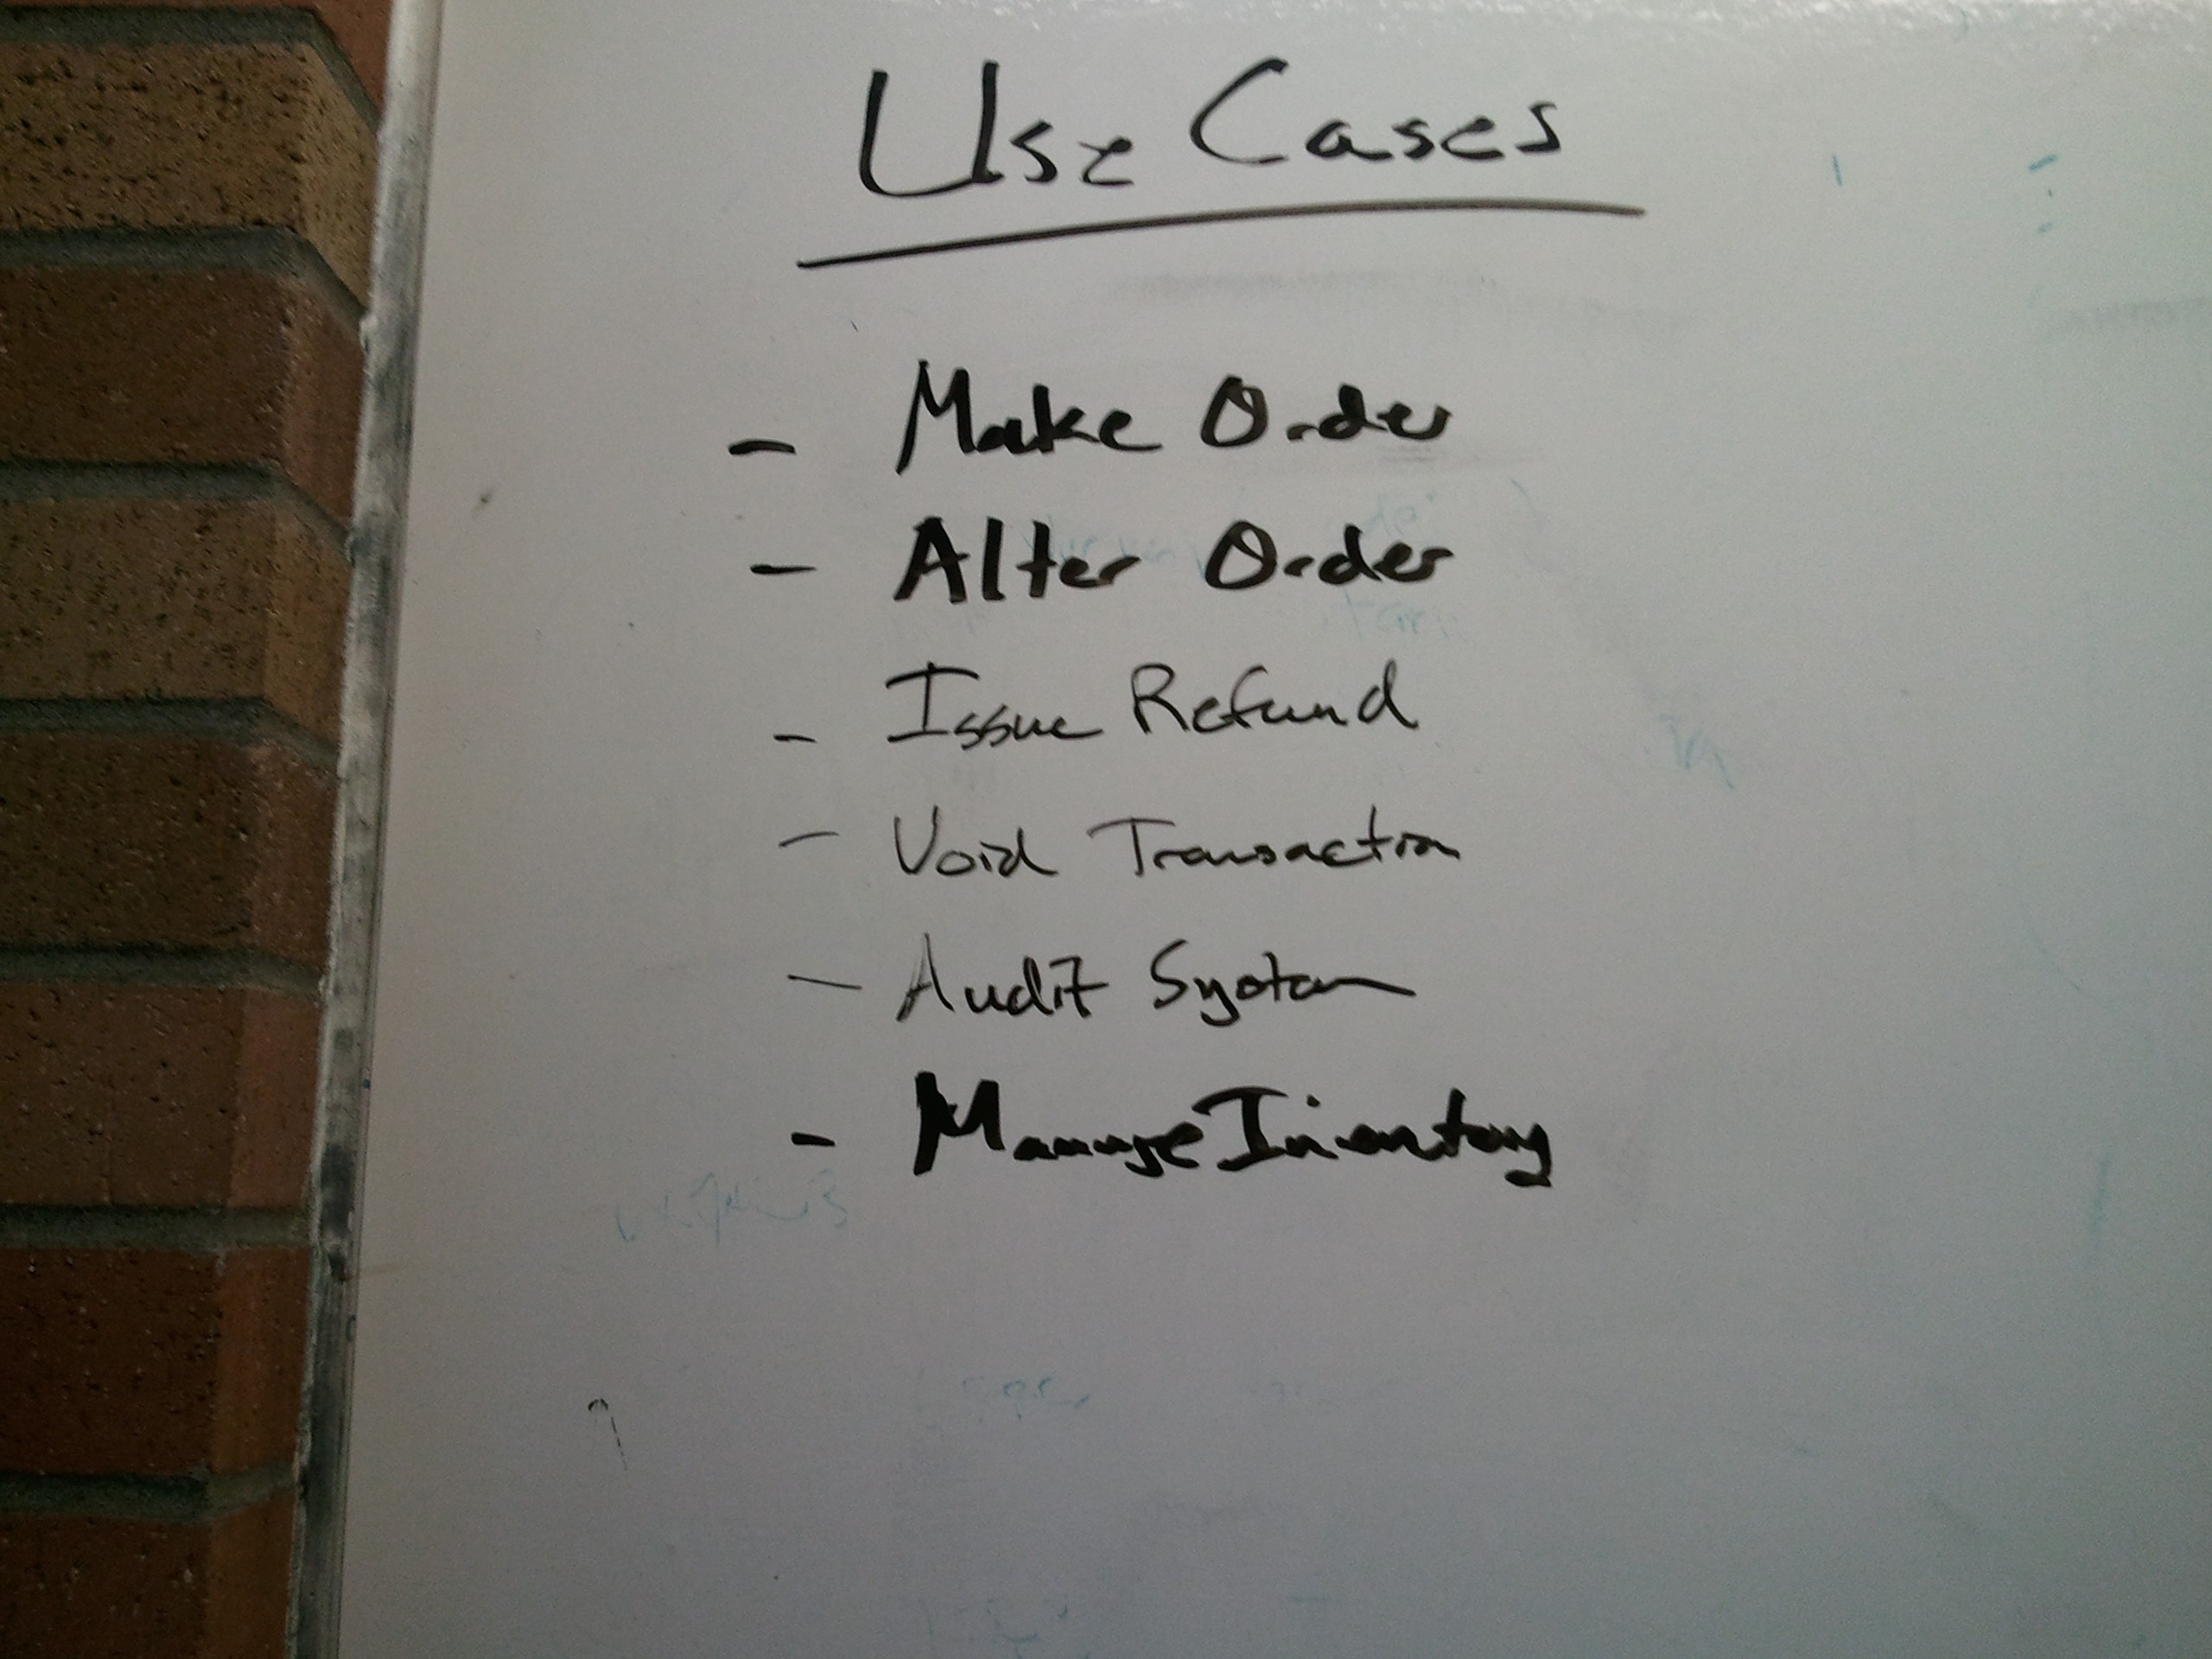 Use Cases
- Make Order
- Alter Order
- Issue Refund
- Void Transaction
- Audit System
- Manage Inventory